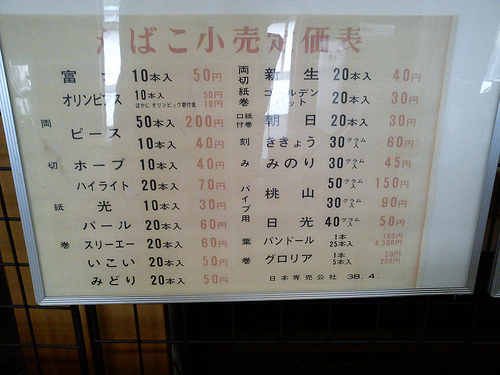 たばこ小売定価表
富士 10本入 50円
オリンピックス 10本入 50円
ほかに オリンピック寄付金 10円
両切紙巻
ピース 50本入 200円
10本入 40円
ホープ 10本入 40円
ハイライト 20本入 70円
光 10本入 30円
パール 20本入 60円
スリーエー 20本入 60円
いこい 20本入 50円
みどり 20本入 50円
両切紙巻 新生 20本入 40円
ゴールデンバット 20本入 30円
口付紙巻 朝日 20本入 30円
刻み
ききょう 30グラム入 60円
みのり 30グラム入 45円
パイプ用
桃山 50グラム入 150円
30グラム入 90円
日光 40グラム入 50円
葉巻
パンドール 1本 180円
25本入 4,500円
グロリア 1本 50円
5本入 250円
日本専売公社 38.4.